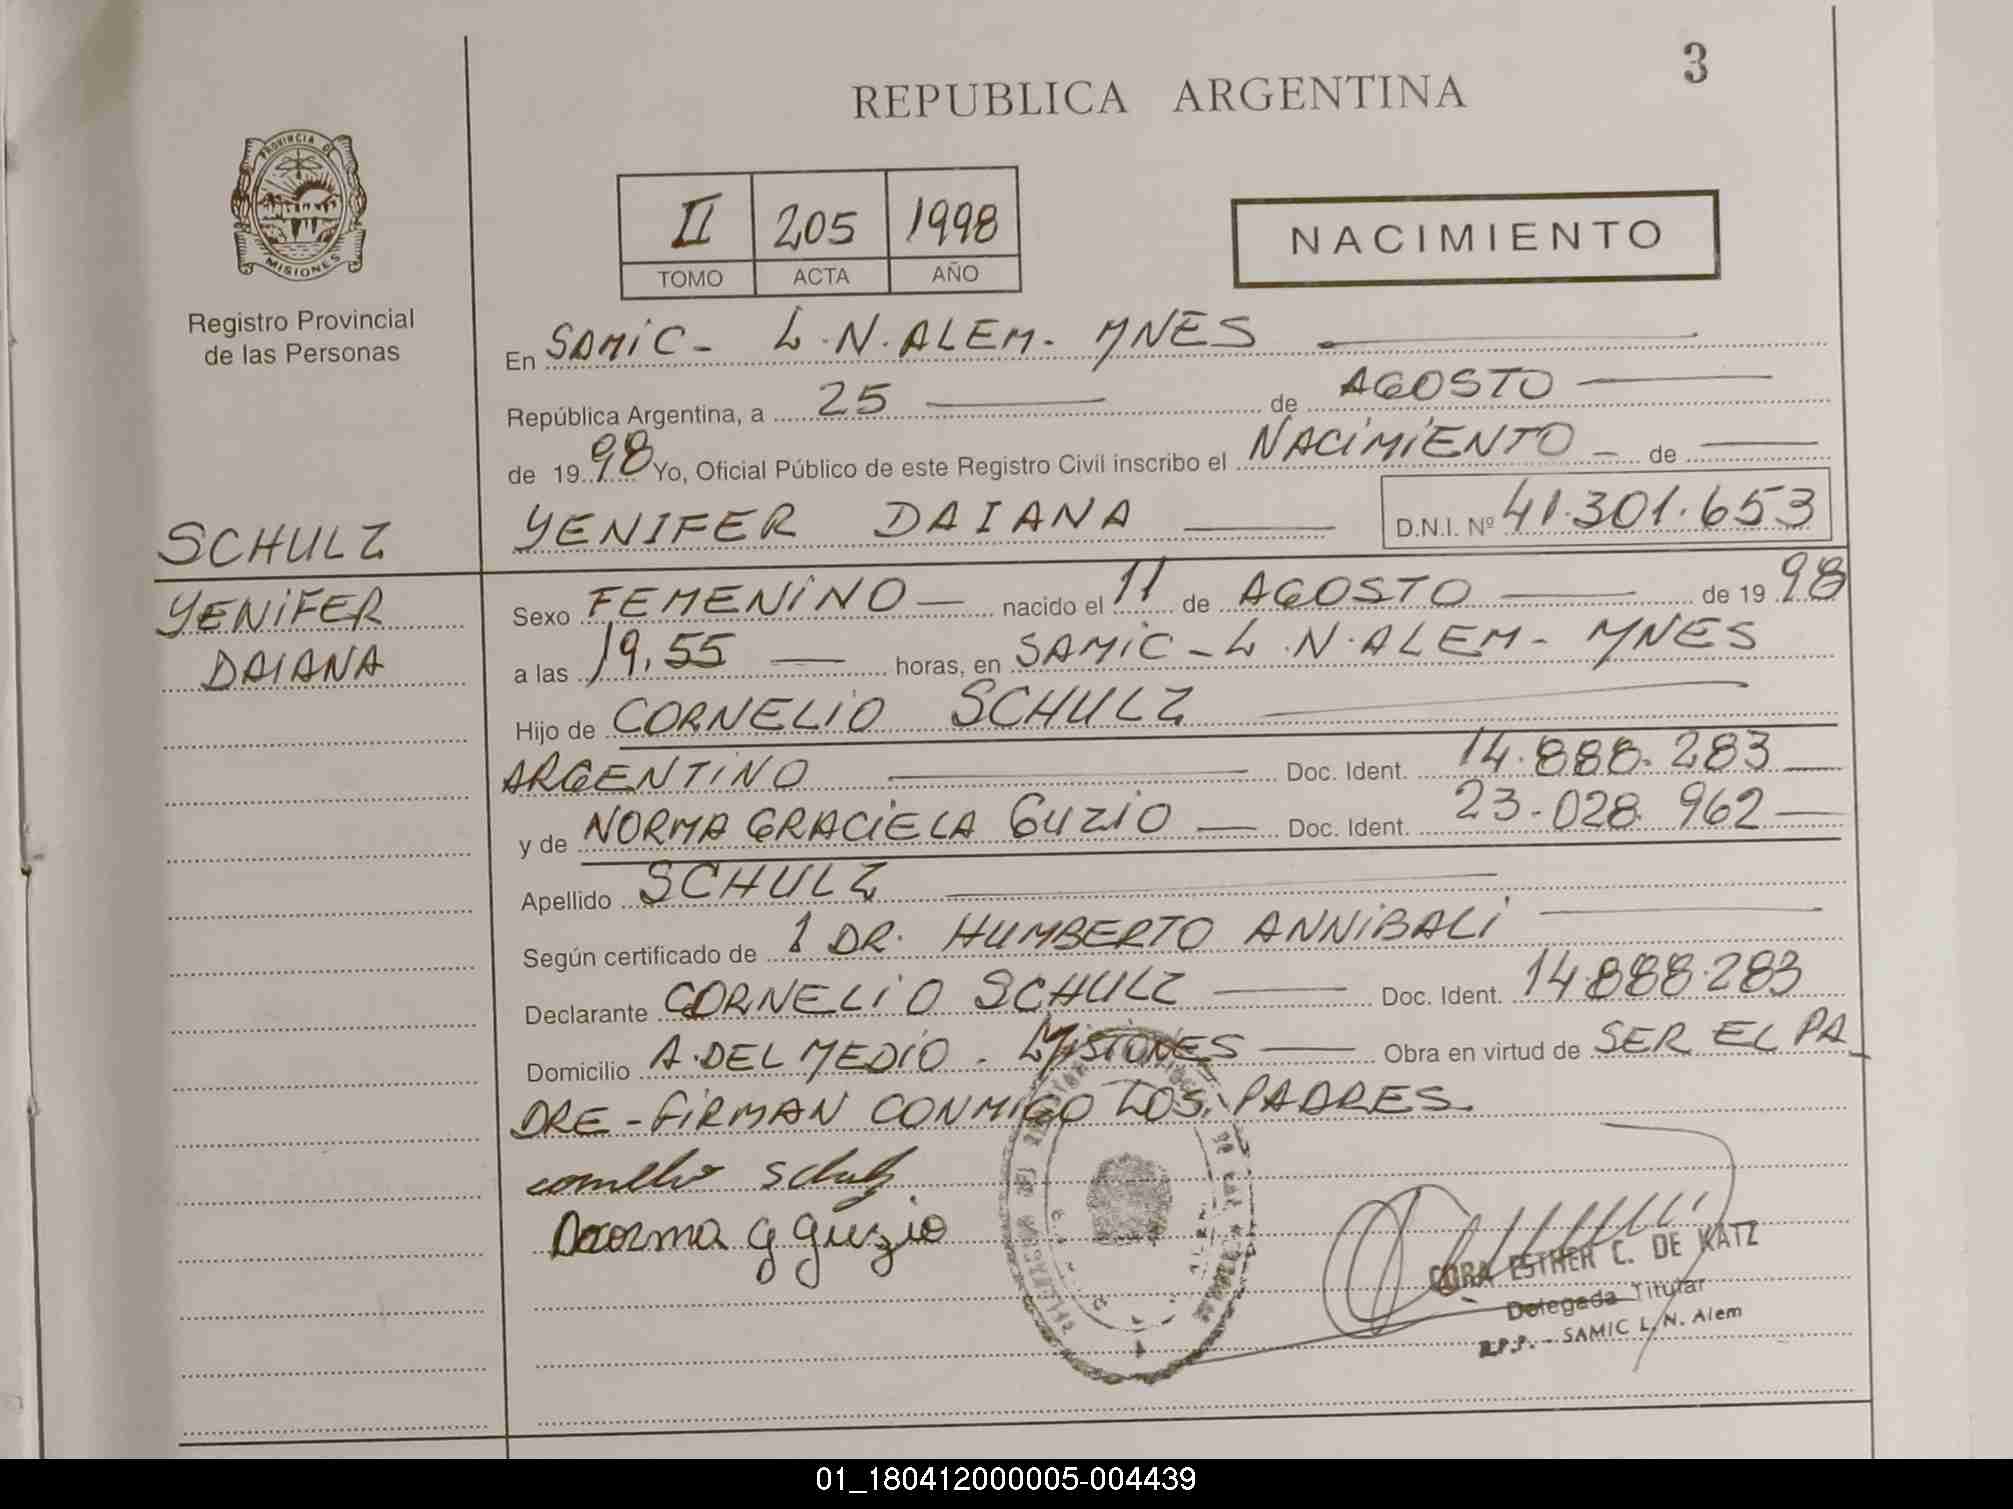 3
REPUBLICA ARGENTINA
PROVINCIA DE
MISIONES
Registro Provincial
de las Personas
II 205 1998
TOMO ACTA AÑO
NACIMIENTO
En SAMIC - L.N. ALEM - MNES
República Argentina, a 25 de AGOSTO
de 1998 Yo, Oficial Público de este Registro Civil inscribo el NACIMIENTO - de
YENIFER DAIANA D.N.I. Nº 41.301.653
SCHULZ
YENIFER
DAIANA
Sexo FEMENINO nacido el 11 de AGOSTO de 1998
a las 19,55 horas, en SAMIC - L.N. ALEM - MNES
Hijo de CORNELIO SCHULZ
ARGENTINO Doc. Ident. 14.888.283
y de NORMA GRACIELA GUZIO Doc. Ident. 23.028.962
Apellido SCHULZ
Según certificado de 1 DR. HUMBERTO ANNIBALI
Declarante CORNELIO SCHULZ Doc. Ident. 14.888.283
Domicilio A. DEL MEDIO - MISIONES Obra en virtud de SER EL PA_
DRE - FIRMAN CONMIGO LOS PADRES.
cornelio Schulz
Norma G Guzio
CORA ESTHER C. DE KATZ
Delegada Titular
R.P.P. - SAMIC L.N. Alem
01_180412000005-004439